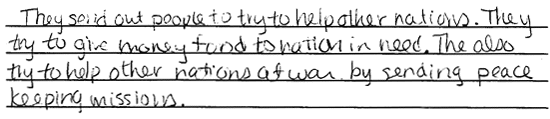 They send out people to try to help other nations. They
try to give money fund to nation in need. The also
try to help other nations at war by sending peace
keeping missions.